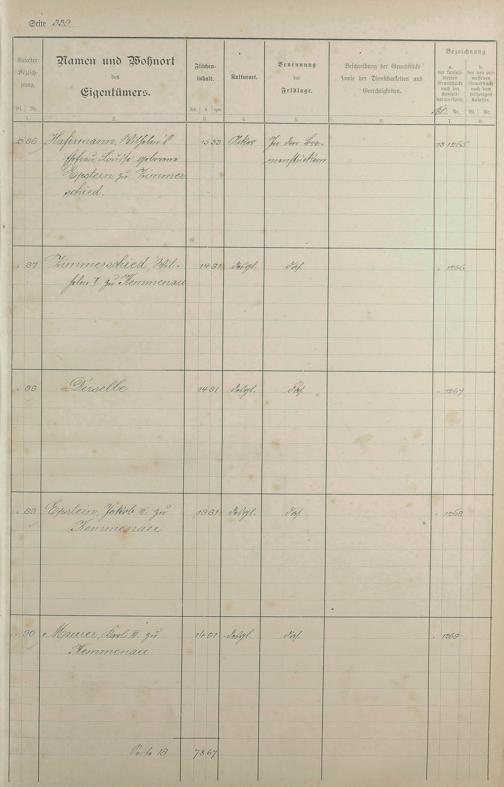 Seite 339
Kataster-
Bezeich-
nung.
Bl. Nr.
Namen und Wohnort
des
Eigentümers.
Flächen-
inhalt.
ha a qm
Kulturart.
Benennung
der
Feldlage.
Beschreibung der Grundstücke
sowie der Dienstbarkeiten und
Gerechtigkeiten.
Bezeichnung
1. 2. 3. 4. 5. 6. 7. 8.
86 Hafermann, Wilhelm
Ehefrau Louise geborene
Epstein zu Zimmer-
schied.
13 33 Acker In den
1265
" 87 Zimmerschied, Wil-
helm I. zu Kemmenau
14 31 desgl. das. " 1266
" 88 Derselbe 14 31 desgl. das. " 1267
" 89 Epstein, Jakob II. zu
Kemmenau
desgl. das. " 1268
" 90 Maurer, Karl III. zu
Kemmenau
14 01 desgl. das. " 1269
Seite 18 78 67